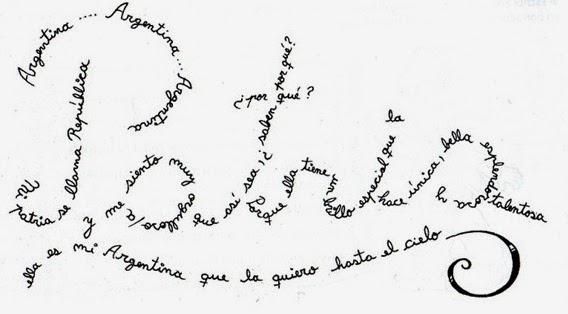 Mi Patria se llama República
Argentina .... Argentina...
Argentina
y me siento muy orgulloso/a
que así sea ¿ saben por qué?
¿por qué?
Porque ella tiene
un brillo especial que la
hace única, bella esplendorosa y talentosa
ella es mi Argentina que la quiero hasta el cielo